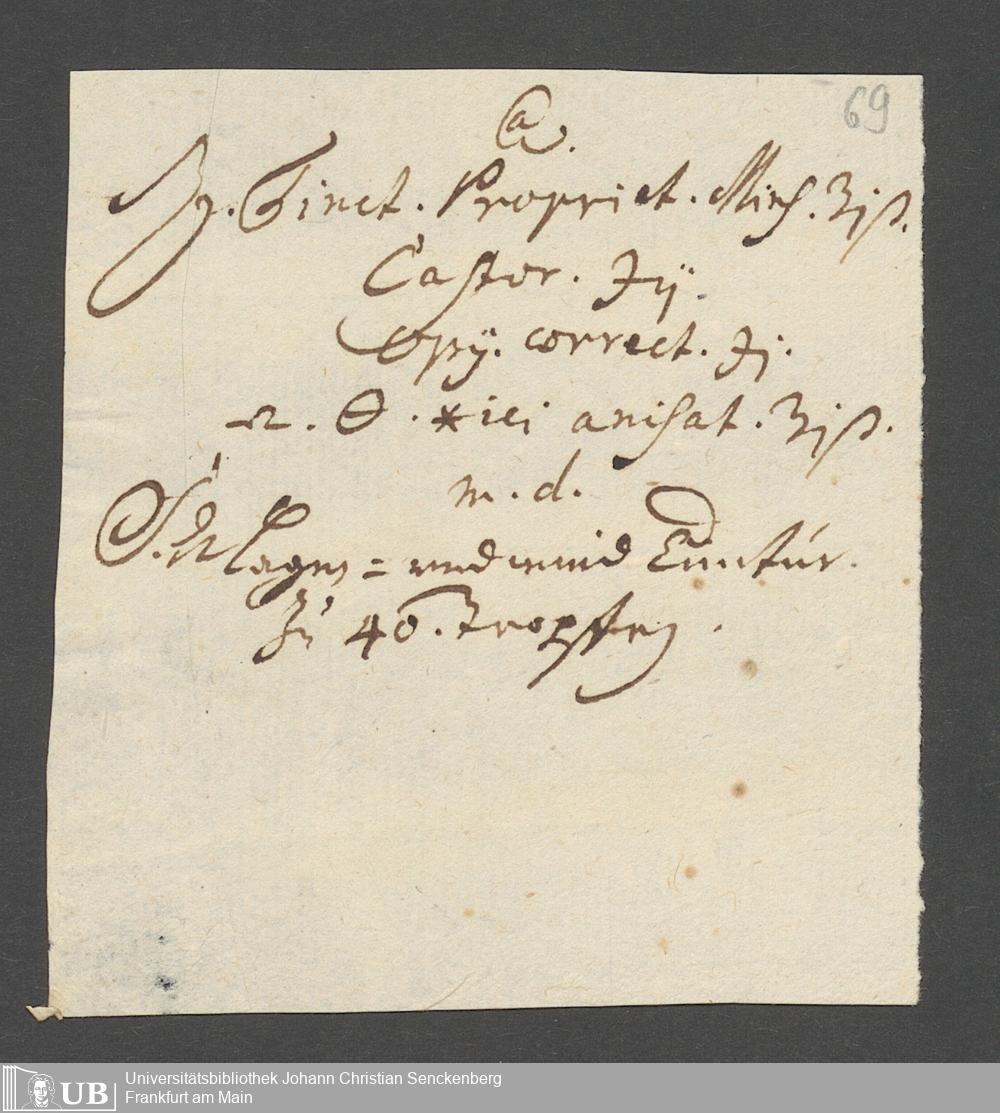 69
a.
℞. Tinct. Propriet. Mins. ʒjß.
Castor. ʒij.
Opij. correct. ʒj.
🜔. *ici anisat. ʒjß.
m. d.
S. Magen = und wind Tinctúr.
Zú 40. Tropffen.
UB Universitätsbibliothek Johann Christian Senckenberg
Frankfurt am Main